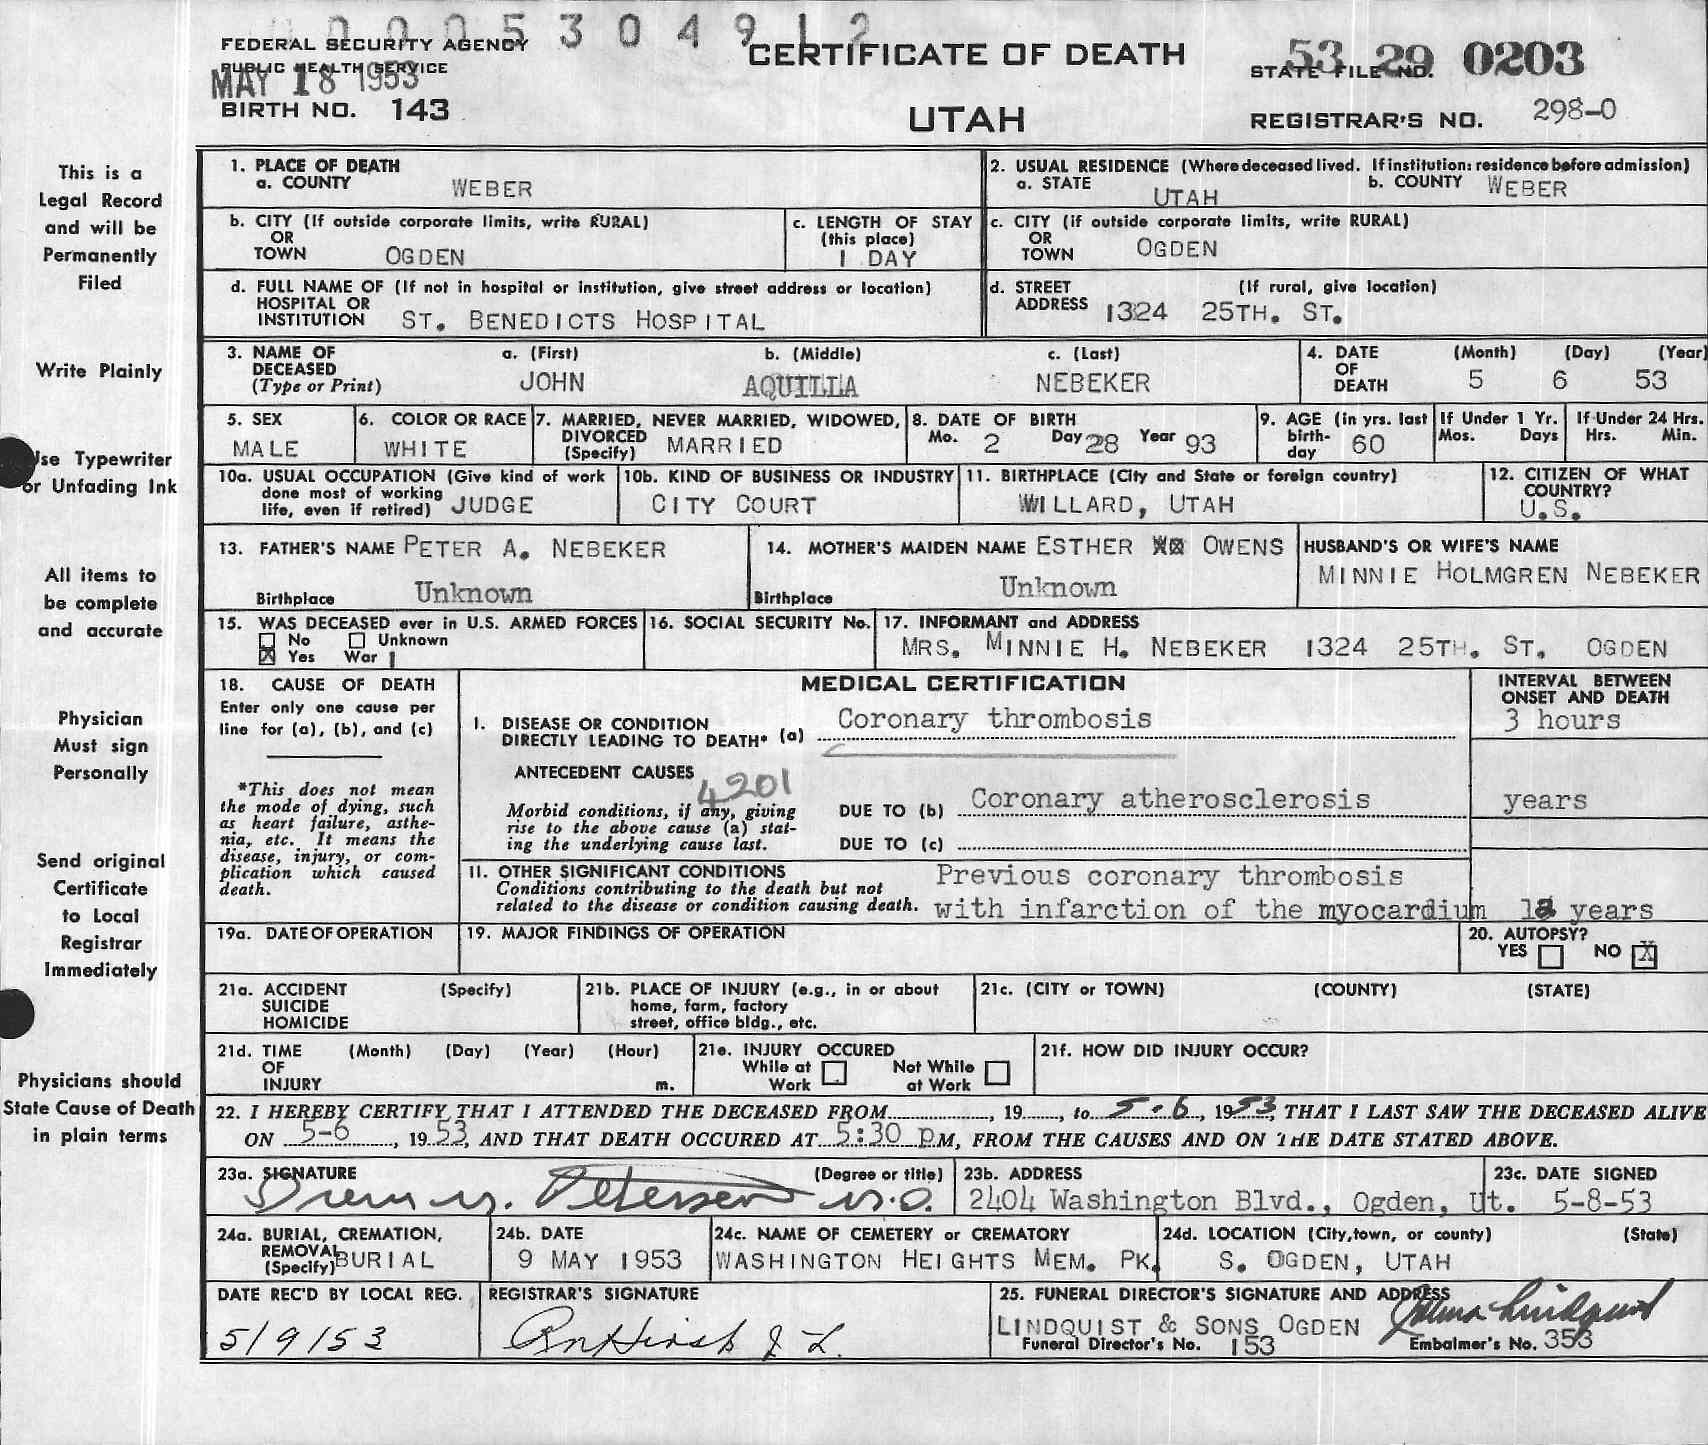 0005304912
FEDERAL SECURITY AGENCY
PUBLIC HEALTH SERVICE
MAY 18 1953
BIRTH NO. 143
CERTIFICATE OF DEATH
UTAH
53 29 0203
STATE FILE NO.
REGISTRAR'S NO. 298-0
This is a
Legal Record
and will be
Permanently
Filed
Write Plainly
Use Typewriter
or Unfading Ink
All items to
be complete
and accurate
Physician
Must sign
Personally
Send original
Certificate
to Local
Registrar
Immediately
Physicians should
State Cause of Death
in plain terms
1. PLACE OF DEATH
a. COUNTY WEBER
2. USUAL RESIDENCE (Where deceased lived. If institution: residence before admission)
a. STATE UTAH b. COUNTY WEBER
b. CITY (If outside corporate limits, write RURAL)
OR
TOWN OGDEN
c. LENGTH OF STAY
(this place)
1 DAY
c. CITY (if outside corporate limits, write RURAL)
OR
TOWN OGDEN
d. FULL NAME OF (If not in hospital or institution, give street address or location)
HOSPITAL OR
INSTITUTION ST. BENEDICTS HOSPITAL
d. STREET (If rural, give location)
ADDRESS 1324 25TH. ST.
3. NAME OF a. (First) b. (Middle) c. (Last)
DECEASED
(Type or Print) JOHN AQUILLA NEBEKER
4. DATE (Month) (Day) (Year)
OF
DEATH 5 6 53
5. SEX
MALE
6. COLOR OR RACE
WHITE
7. MARRIED, NEVER MARRIED, WIDOWED,
DIVORCED
(Specify) MARRIED
8. DATE OF BIRTH
Mo. 2 Day 28 Year 93
9. AGE (in yrs. last
birth-
day 60
If Under 1 Yr.
Mos. Days
If Under 24 Hrs.
Hrs. Min.
10a. USUAL OCCUPATION (Give kind of work
done most of working
life, even if retired) JUDGE
10b. KIND OF BUSINESS OR INDUSTRY
CITY COURT
11. BIRTHPLACE (City and State or foreign country)
WILLARD, UTAH
12. CITIZEN OF WHAT
COUNTRY?
U.S.
13. FATHER'S NAME PETER A. NEBEKER
Birthplace Unknown
14. MOTHER'S MAIDEN NAME ESTHER OWENS
Birthplace Unknown
HUSBAND'S OR WIFE'S NAME
MINNIE HOLMGREN NEBEKER
15. WAS DECEASED ever in U.S. ARMED FORCES
No Unknown
X Yes War I
16. SOCIAL SECURITY No.
17. INFORMANT and ADDRESS
MRS. MINNIE H. NEBEKER 1324 25TH. ST. OGDEN
18. CAUSE OF DEATH
Enter only one cause per
line for (a), (b), and (c)
*This does not mean
the mode of dying, such
as heart failure, asthe-
nia, etc. It means the
disease, injury, or com-
plication which caused
death.
MEDICAL CERTIFICATION
INTERVAL BETWEEN
ONSET AND DEATH
I. DISEASE OR CONDITION
DIRECTLY LEADING TO DEATH* (a) Coronary thrombosis 3 hours
ANTECEDENT CAUSES
4201
Morbid conditions, if any, giving
rise to the above cause (a) stat-
ing the underlying cause last.
DUE TO (b) Coronary atherosclerosis years
DUE TO (c)
II. OTHER SIGNIFICANT CONDITIONS
Conditions contributing to the death but not
related to the disease or condition causing death.
Previous coronary thrombosis
with infarction of the myocardium years
19a. DATE OF OPERATION
19. MAJOR FINDINGS OF OPERATION
20. AUTOPSY?
YES NO X
21a. ACCIDENT (Specify)
SUICIDE
HOMICIDE
21b. PLACE OF INJURY (e.g., in or about
home, farm, factory
street, office bldg., etc.
21c. (CITY or TOWN) (COUNTY) (STATE)
21d. TIME (Month) (Day) (Year) (Hour)
OF
INJURY m.
21e. INJURY OCCURED
While at Not While
Work at Work
21f. HOW DID INJURY OCCUR?
22. I HEREBY CERTIFY THAT I ATTENDED THE DECEASED FROM , 19 , to 5-6, 1953, THAT I LAST SAW THE DECEASED ALIVE
ON 5-6, 1953, AND THAT DEATH OCCURED AT 5:30 PM, FROM THE CAUSES AND ON THE DATE STATED ABOVE.
23a. SIGNATURE (Degree or title)
Petersen M.D.
23b. ADDRESS
2404 Washington Blvd., Ogden, Ut.
23c. DATE SIGNED
5-8-53
24a. BURIAL, CREMATION,
REMOVAL
(Specify) BURIAL
24b. DATE
9 MAY 1953
24c. NAME OF CEMETERY or CREMATORY
WASHINGTON HEIGHTS MEM. PK.
24d. LOCATION (City, town, or county) (State)
S. OGDEN, UTAH
DATE REC'D BY LOCAL REG.
5/9/53
REGISTRAR'S SIGNATURE
25. FUNERAL DIRECTOR'S SIGNATURE AND ADDRESS
LINDQUIST & SONS OGDEN
Lindquist
Funeral Director's No. 153
Embalmer's No. 353